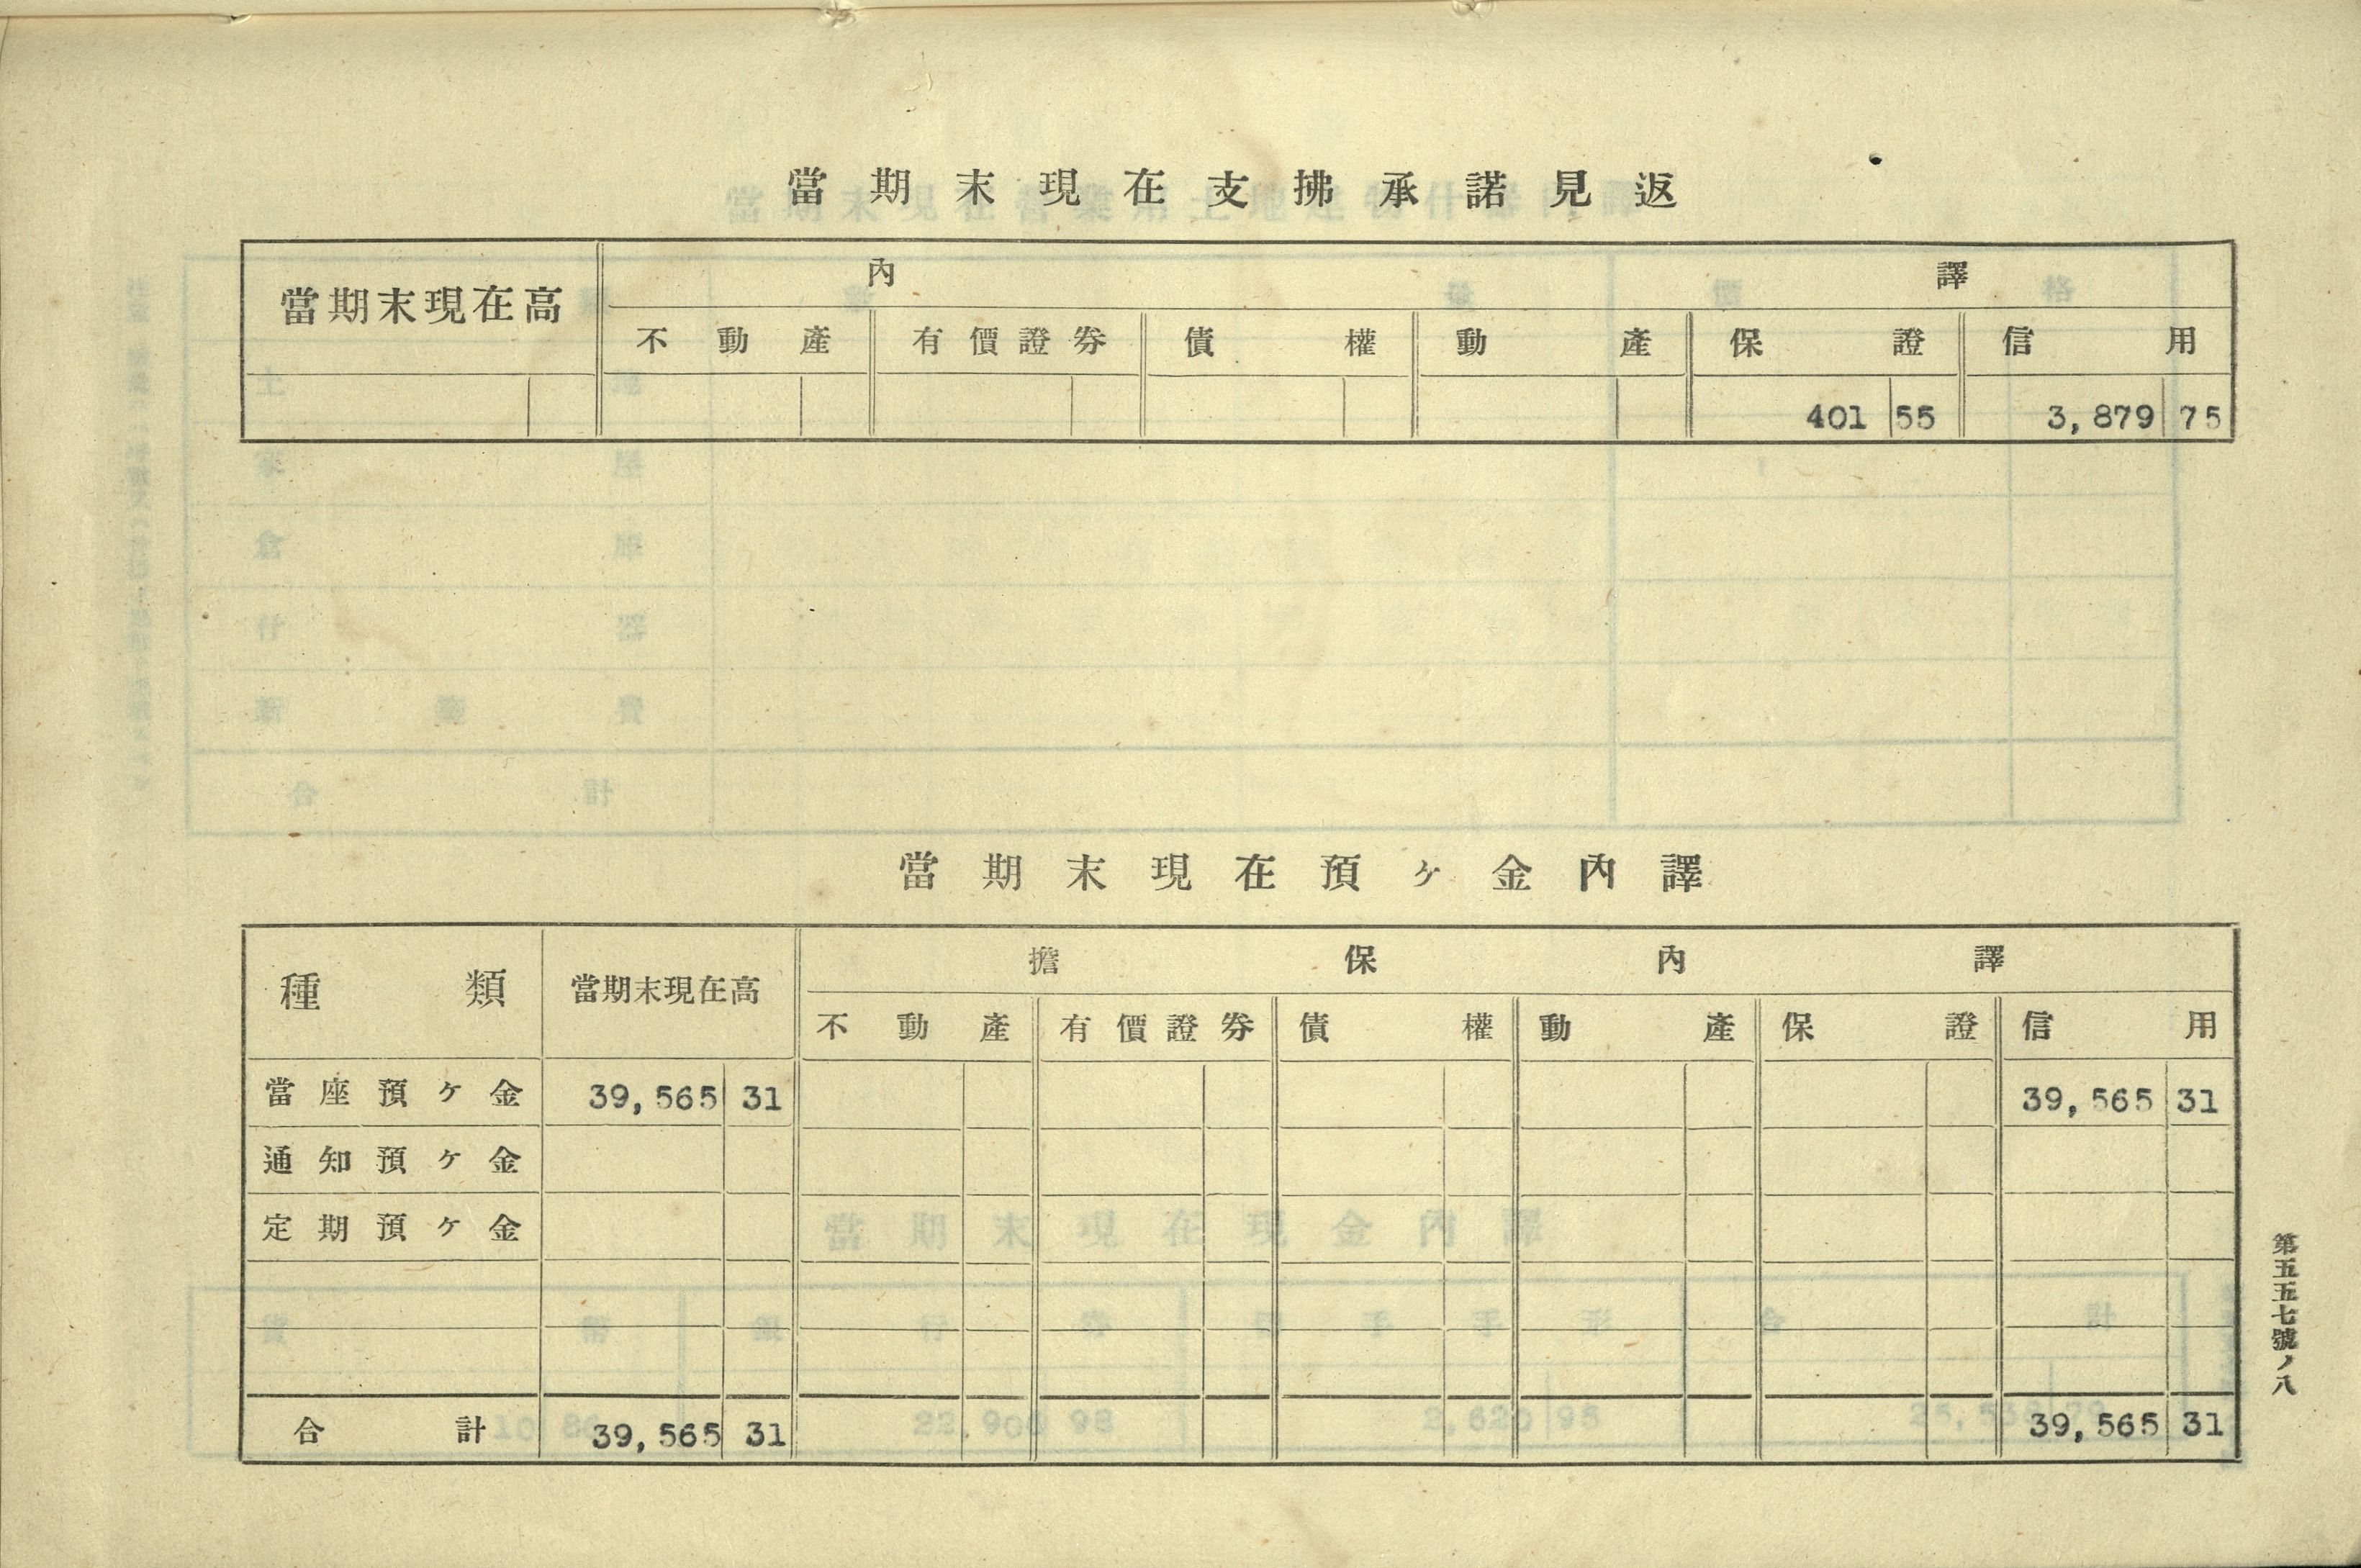 當期末現在支拂承諾見返
當期末現在高 內譯
不動產 有價證券 債權 動產 保證 信用
401 55 3,879 75
當期末現在預ヶ金內譯
種類 當期末現在高 擔保內譯
不動產 有價證券 債權 動產 保證 信用
當座預ヶ金 39,565 31 39,565 31
通知預ヶ金
定期預ヶ金
合計 39,565 31 39,565 31
第五五七號ノ八